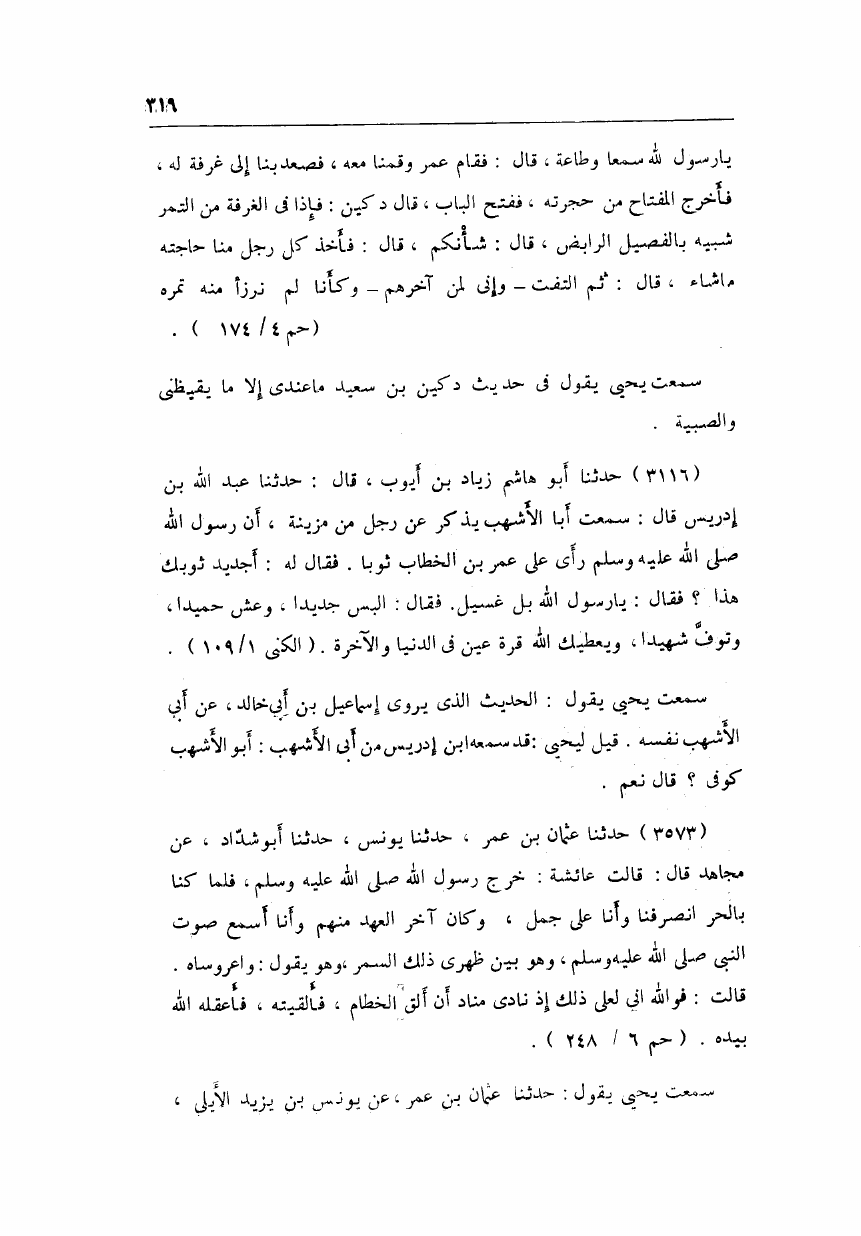 ٣١٩
يارسول لله سمعا وطاعة ، قال : فقام عمر وقمنا معه ، فصعد بنا إلى غرفة له ،
فأخرج المفتاح من حجرته ، ففتح الباب ، قال دكين : فإذا فى الغرفة من التمر
شبيه بالفصيل الرابض ، قال : شأنكم ، قال : فأخذ كل رجل منا حاجته
ماشاء ، قال : ثم التفت – وإنى لمن آخرهم – وكأنا لم نرزأ منه تمره
(حم ٤/ ١٧٤ ) .
سمعت يحيى يقول فى حديث دكين بن سعيد ماعندى إلا ما يقيظنى
والصبية .
(٣١١٦) حدثنا أبو هاشم زياد بن أيوب ، قال : حدثنا عبد الله بن
إدريس قال : سمعت أبا الأشهب يذكر عن رجل من مزينة ، أن رسول الله
صلى الله عليه وسلم رأى على عمر بن الخطاب ثوبا . فقال له : أجديد ثوبك
هذا ؟ فقال : يارسول الله بل غسيل. فقال : البس جديدا ، وعش حميدا ،
وتوفَّ شهيدا ، ويعطيك الله قرة عين فى الدنيا والآخرة . ( الكنى ١٠٩/١ ) .
سمعت يحيى يقول : الحديث الذى يروى إسماعيل بن أبي خالد ، عن أبي
الأشهب نفسه . قيل ليحيى :قد سمعه ابن إدريس من أبى الأشهب : أبو الأشهب
كوفى ؟ قال نعم .
(٣٥٧٣) حدثنا عثمان بن عمر ، حدثنا يونس ، حدثنا أبو شدّاد ، عن
مجاهد قال : قالت عائشة : خرج رسول الله صلى الله عليه وسلم ، فلما كنا
بالحر انصرفنا وأنا على جمل ، وكان آخر العهد منهم وأنا أسمع صوت
النبى صلى الله عليه وسلم ، وهو بين ظهرى ذلك السمر ،وهو يقول : واعروساه .
قالت : فوالله انى لعلى ذلك إذ نادى مناد أن ألق الخطام ، فألقيته ، فأعقله الله
بيده . ( حم ٦ / ٢٤٨ ) .
سمعت يحيى يقول : حدثنا عثمان بن عمر ،عن يونس بن يزيد الأيلى ،